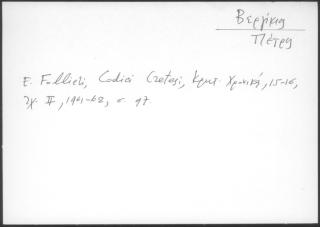 Βεργίκιος
Πέτρος
E. Follieri, Codici Cretesi, Κρητ. Χρονικά, 15-16,
τχ. II, 1961-62, σ. 97.